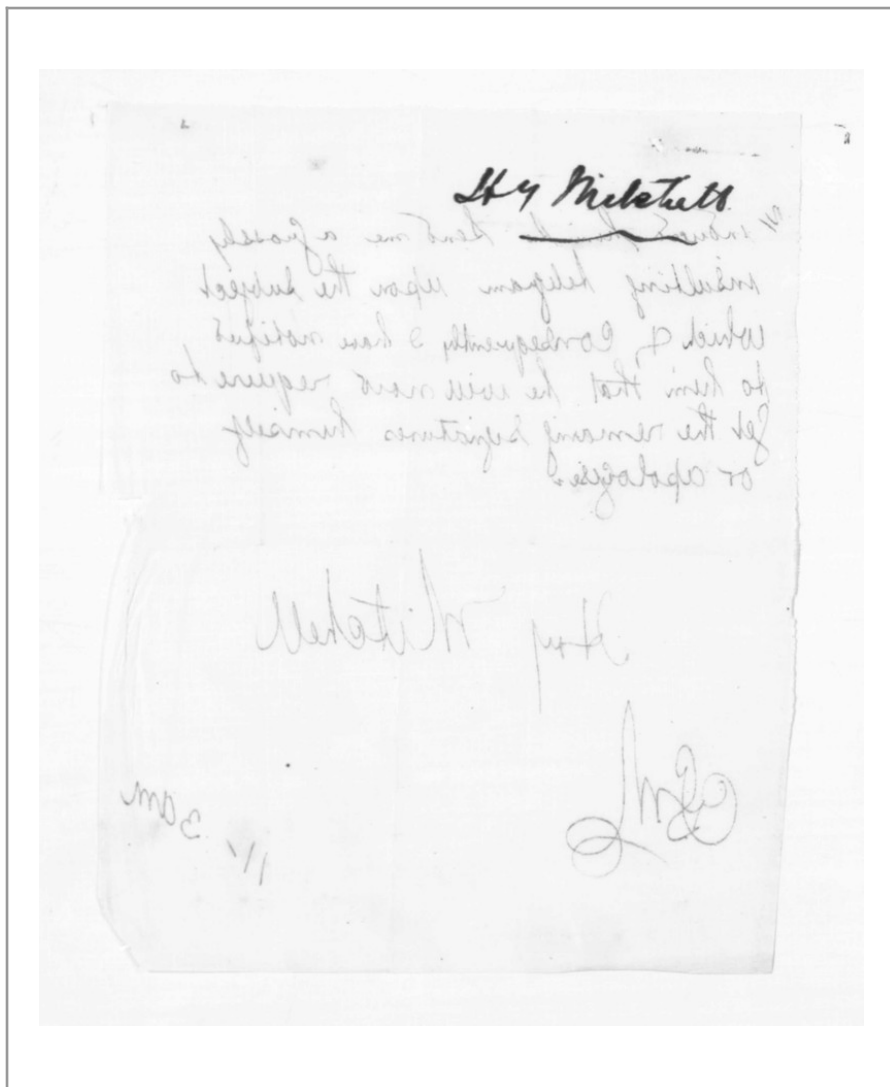 Hy Mitchell.
induced him to send me a grossly
insulting telegram upon the subject
which & consequently I have notified
to him that he will now require to
get the remaing signatures himself
or apologise.
Hny Mitchell
3 am